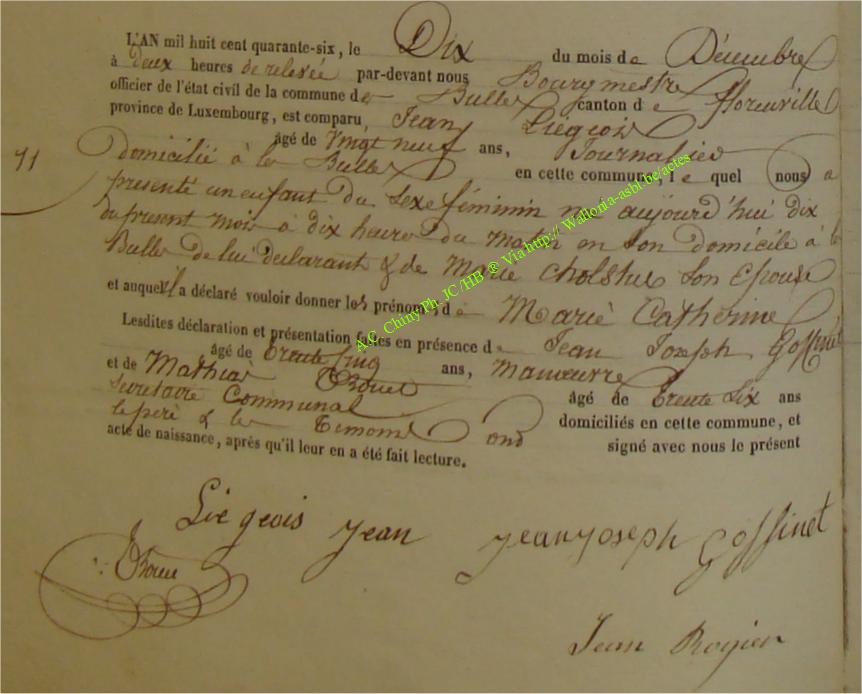 L'AN mil huit cent quarante-six, le Dix du mois de Décembre
à deux heures de relevée par-devant nous Bourgmestre
officier de l'état civil de la commune de Bulles canton de florenville
province de Luxembourg, est comparu Jean Liégeois
âgé de Vingt neuf ans, Journalier
11
domicilié à les Bulles en cette commune, le quel nous a
présenté un enfant du sexe féminin né aujourd'hui dix
du présent mois à dix heures du matin en son domicile à les
Bulles de lui déclarant & de Marie son Epouse
et auquel il a déclaré vouloir donner les prénoms de Marie Catherine
Lesdites déclaration et présentation faites en présence de Jean Joseph Goffinet
âgé de trente cinq ans, manœuvre
et de Mathias âgé de trente six ans
Secretaire Communal domiciliés en cette commune, et
le père & les témoins ond signé avec nous le présent
acte de naissance, après qu'il leur en a été fait lecture.
Liégeois Jean jean joseph goffinet
Jean Rogier
A.C. Chiny Ph. JC/HB @ Via http:// Wallonia-asbl.be/actes